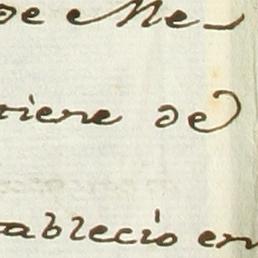 de Me-
tiene de
tablecio en